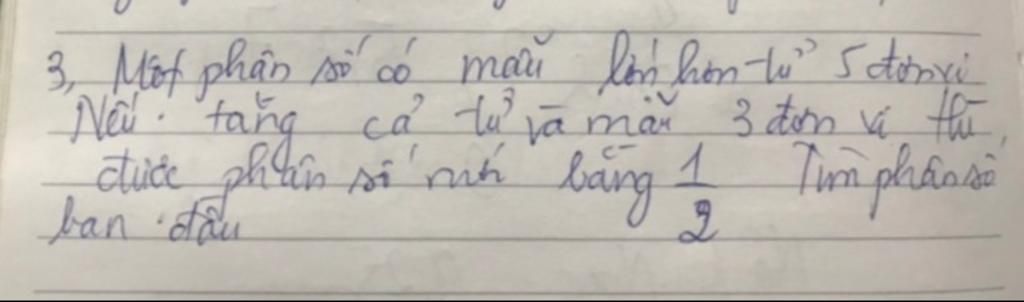 3, Một phân số có mẫu lớn hơn tử 5 đơn vị
Nếu tăng cả tử và mẫu 3 đơn vị thì
được phân số mới bằng 1/2 Tìm phân số
ban đầu